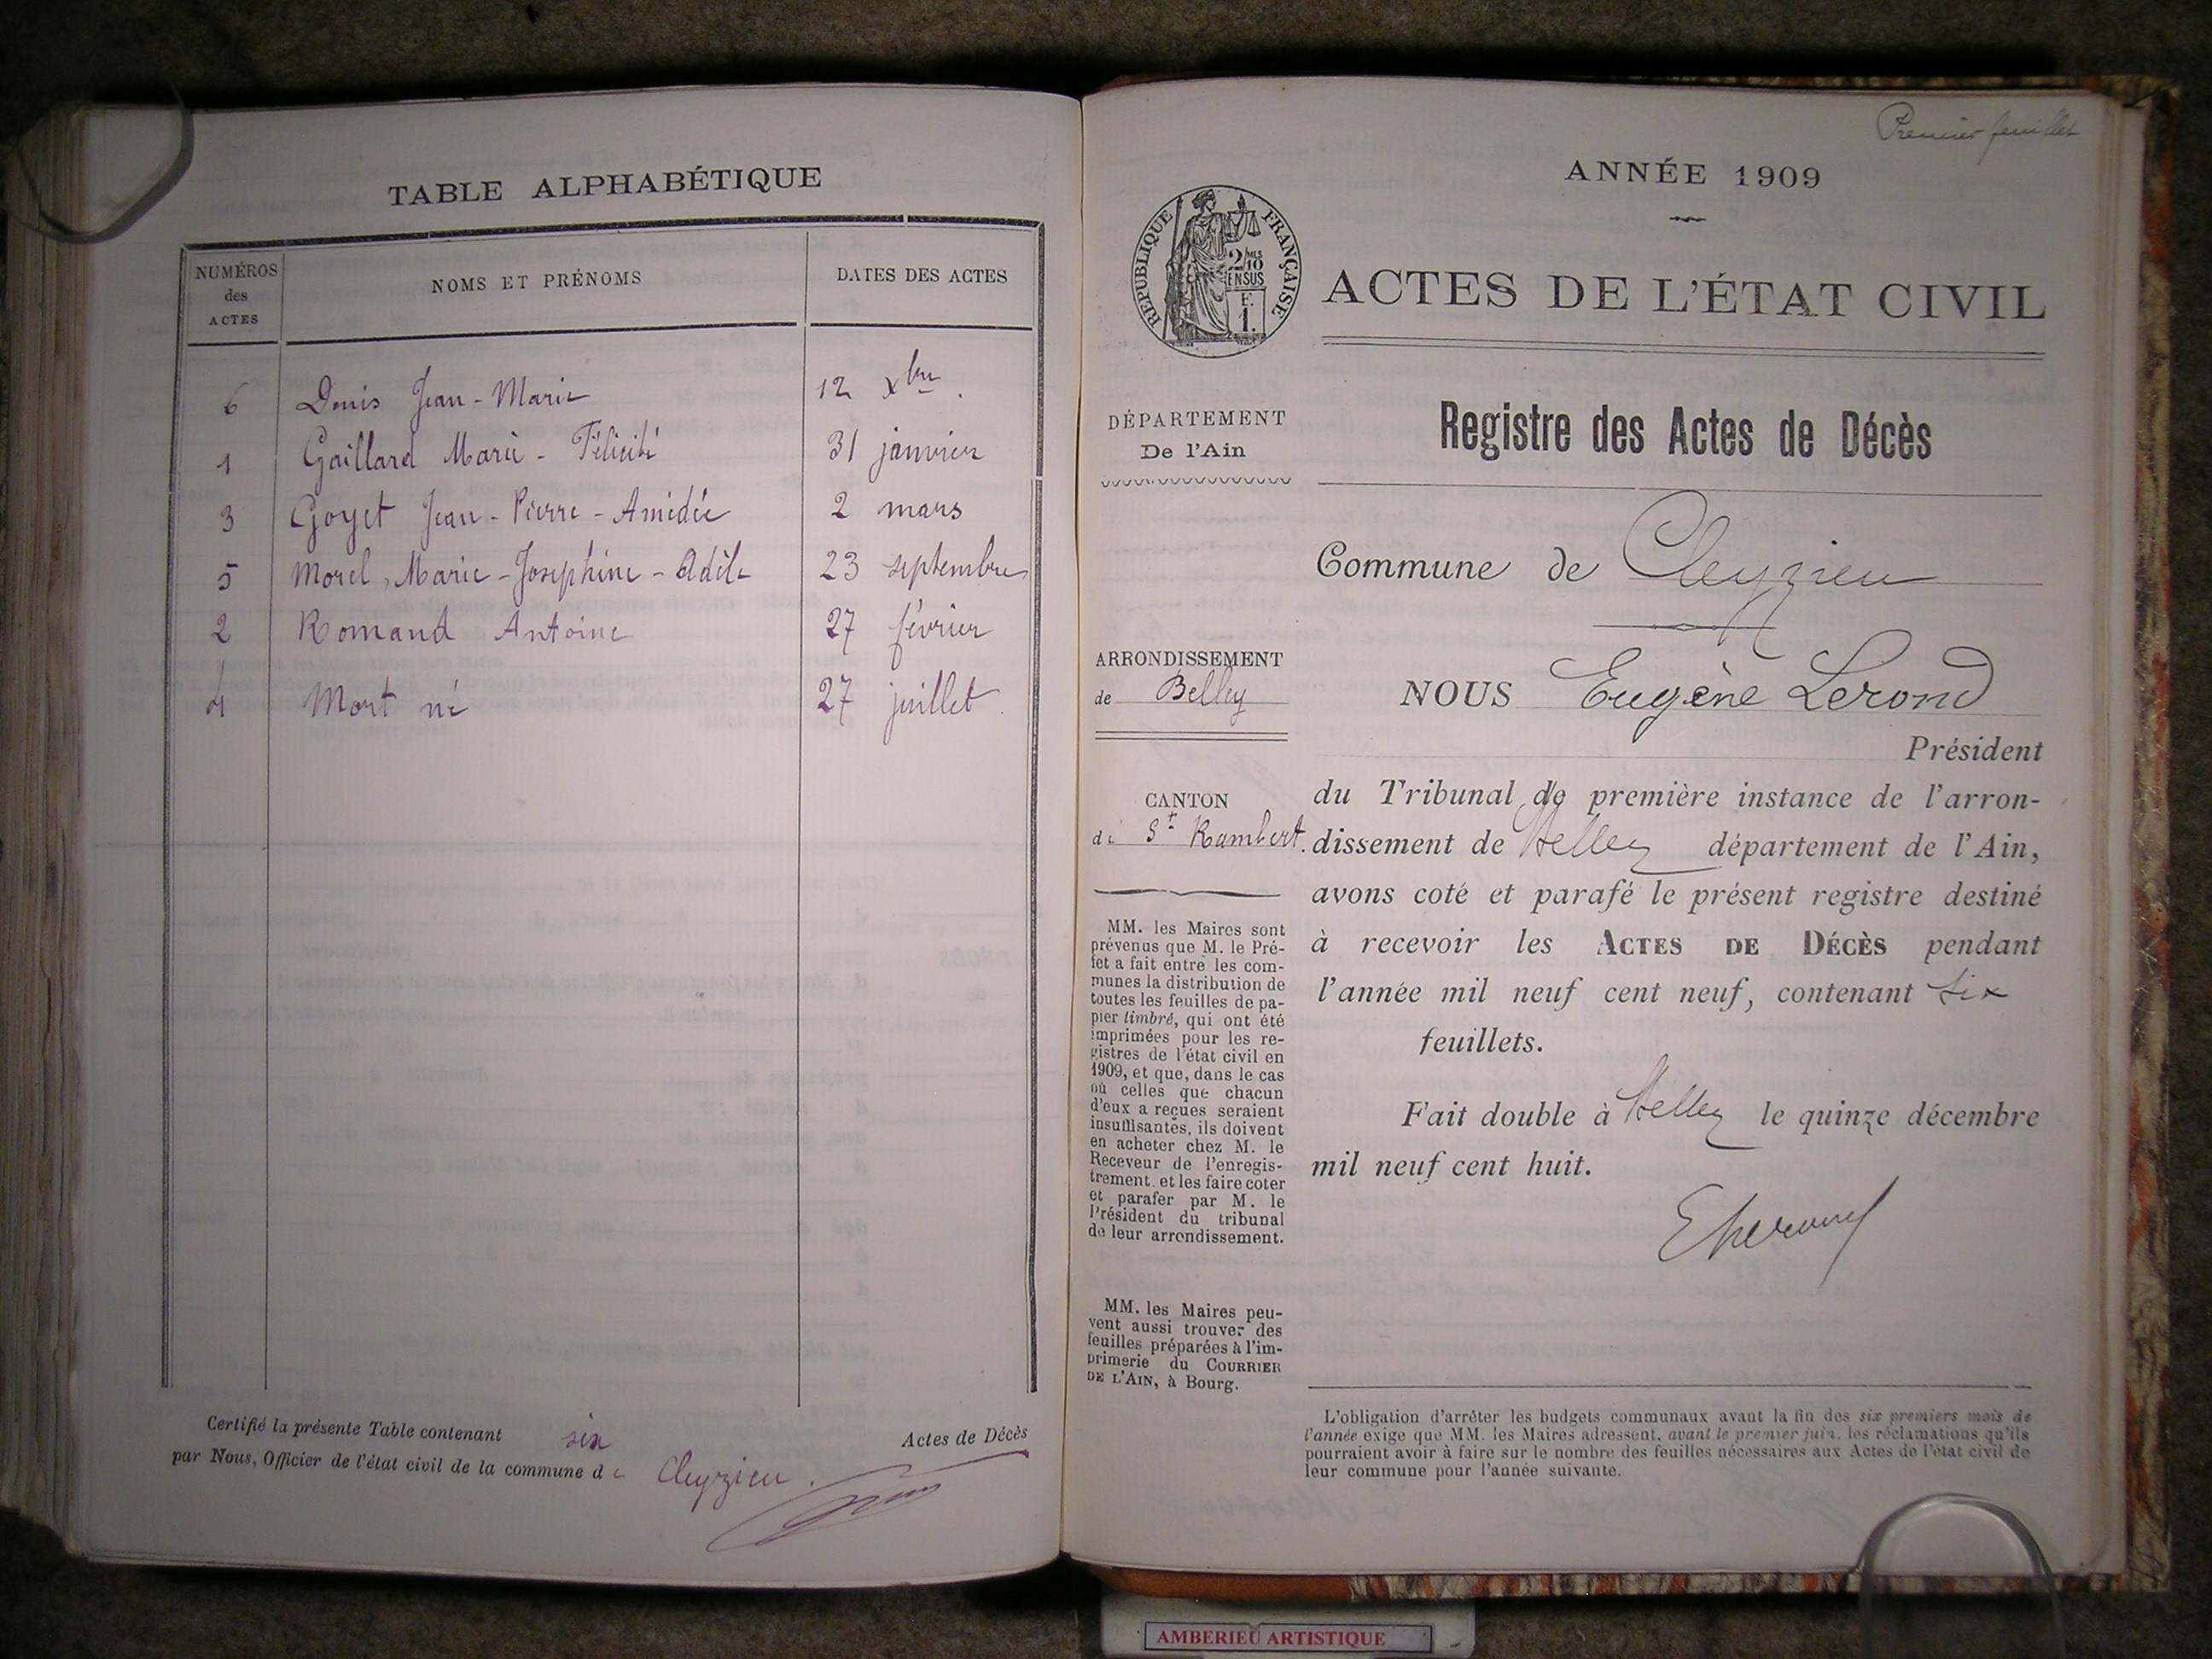 TABLE ALPHABÉTIQUE
NUMÉROS
des
ACTES
NOMS ET PRÉNOMS
DATES DES ACTES
6 Denis Jean-Marie 12 xbre.
1 Gaillard Marie-Félicité 31 janvier
3 Goyet Jean-Pierre-Amédée 2 mars
5 Morel, Marie-Joséphine-Adèle 23 septembre
2 Romand Antoine 27 février
4 Mort né 27 juillet.
Certifié la présente Table contenant six Actes de Décès
par Nous, Officier de l'état civil de la commune de Cleyzieu.
Premier feuillet
ANNÉE 1909
REPUBLIQUE FRANÇAISE
2/10
EN SUS
F.
1.
ACTES DE L'ÉTAT CIVIL
DÉPARTEMENT
De l'Ain
ARRONDISSEMENT
de Belley
CANTON
de St Rambert.
MM. les Maires sont
prévenus que M. le Pré-
fet a fait entre les com-
munes la distribution de
toutes les feuilles de pa-
pier timbré, qui ont été
imprimées pour les re-
gistres de l'état civil en
1909, et que, dans le cas
où celles que chacun
d'eux a reçues seraient
insuffisantes, ils doivent
en acheter chez M. le
Receveur de l'enregis-
trement. et les faire coter
et parafer par M. le
Président du tribunal
de leur arrondissement.
MM. les Maires peu-
vent aussi trouver des
feuilles préparées à l'im-
primerie du COURRIER
DE L'AIN, à Bourg.
Registre des Actes de Décès
Commune de Cleyzieu
NOUS Eugène Lerond
Président
du Tribunal de première instance de l'arron-
dissement de Belley département de l'Ain,
avons coté et parafé le présent registre destiné
à recevoir les ACTES DE DÉCÈS pendant
l'année mil neuf cent neuf, contenant six
feuillets.
Fait double à Belley le quinze décembre
mil neuf cent huit.
L'obligation d'arrêter les budgets communaux avant la fin des six premiers mois de
l'année exige que MM. les Maires adressent, avant le premier juin, les réclamations qu'ils
pourraient avoir à faire sur le nombre des feuilles nécessaires aux Actes de l'état civil de
leur commune pour l'année suivante.
AMBERIEU ARTISTIQUE